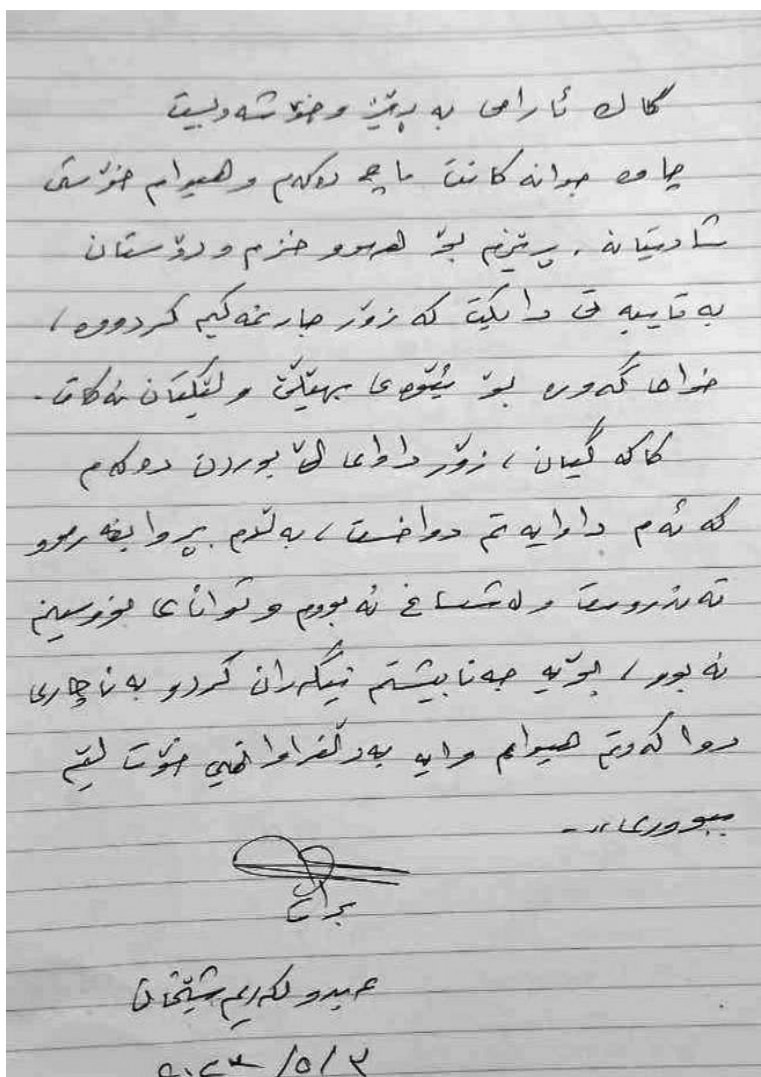 کاک ئارامی بە ڕێز و خۆشەویست
چاوە جوانەکانت ماچ دەکەم و هیوام خۆشی
شادیتانە. ڕێزم بۆ هەموو خزم و دۆستان
بە تایبەتی دایکت کە زۆر جار نمەکیم کردووە،
خوای گەورە بۆ ئێوەی بهێڵێ و لێکتان نەکات.
کاکە گیان، زۆر داوای لێ بوردن دەکەم
کە ئەم داوایە تم دواخست، بەڵام بڕوا بفەرموو
تەندروست و لەشساغ نەبووم و توانای نووسینم
نەبوو، بۆیە جەنابیشتم نیگەران کردو بە ناچاری
دوا کەوتم هیوام وایە بەدڵفراوانیی خۆت لێم
ببووری..
برات
عبدولکەریم شێخان
٢٠٢٣/٥/٢